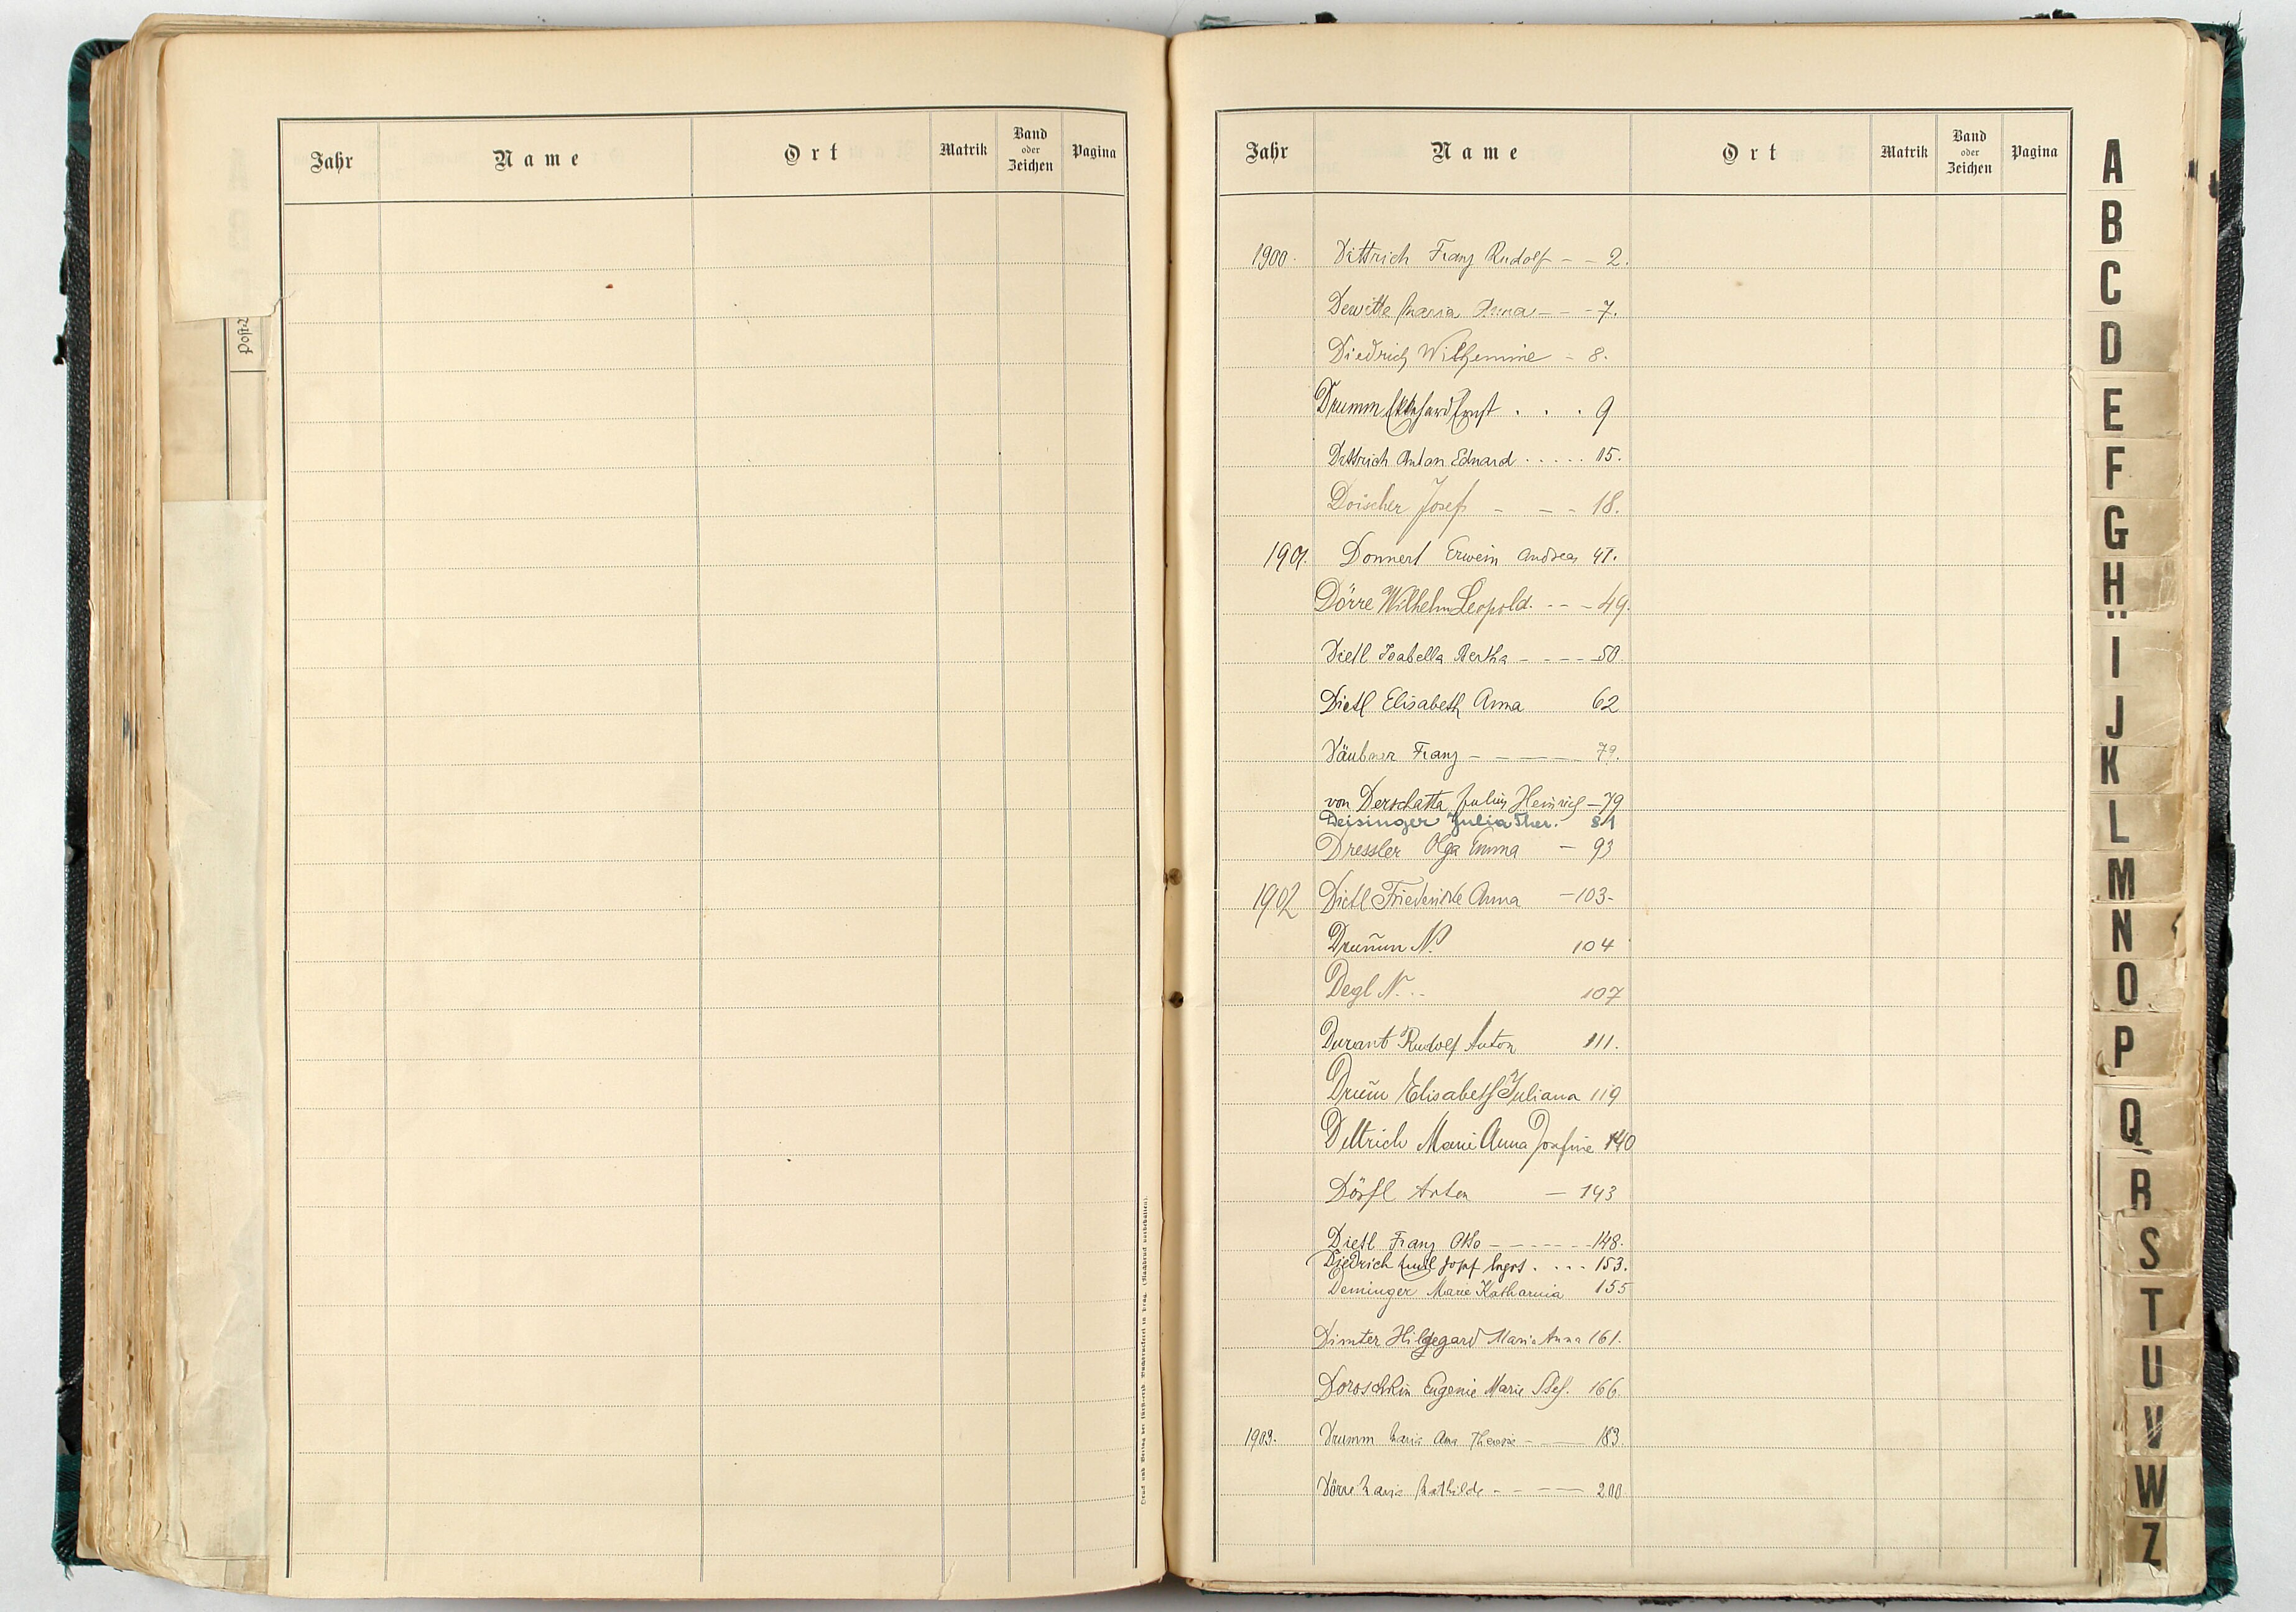 Jahr Name Ort Matrik Band oder Zeichen Pagina
Post-
Druck und Verlag der fürst-erzb. Buchdruckerei in Prag. (Nachdruck vorbehalten).
Jahr Name Ort Matrik Band oder Zeichen Pagina
1900. Dittrich Franz Rudolf - - 2.
Dewitte Maria Anna - - - 7.
Diedrich Wilhemine - 8.
Drumm Ekkehard Ernst . . . 9
Dittrich Anton Eduard . . . . . 15.
Doischer Josef - - - 18.
1901. Donnert Erwein Andreas 41.
Dörre Wilhelm Leopold. - - - 49.
Dietl Isabella Bertha - - - - 50.
Dietl Elisabeth Anna 62
Däubner Franz - - - - 79.
von Derschatta Julius Heinrich - 79
Deisinger Julia Ther. 81
Dressler Olga Emma - 93
1902 Dietl Friederike Anna - 103-
Drum̄m N. 104
Degl N. . . 107
Durant Rudolf Anton 111.
Drum̄ Elisabeth Juliana 119
Dittrich Marie Anna Josefine 140
Dörfl Anton - 143
Dietl Franz Otto - - - - - - 148.
Diedrich Emil Josef . . . . 153.
Deminger Marie Katharina 155
Dimter Hildegard Maria Anna 161.
Doroschkin Eugenie Marie Stef. 166.
1903. Drumm Maria Ana Theresie - - 183.
Dörre Maria Mathilde - - - 200
A
B
C
D
E
F
G
H
I
J
K
L
M
N
O
P
Q
R
S
T
U
V
W
Z